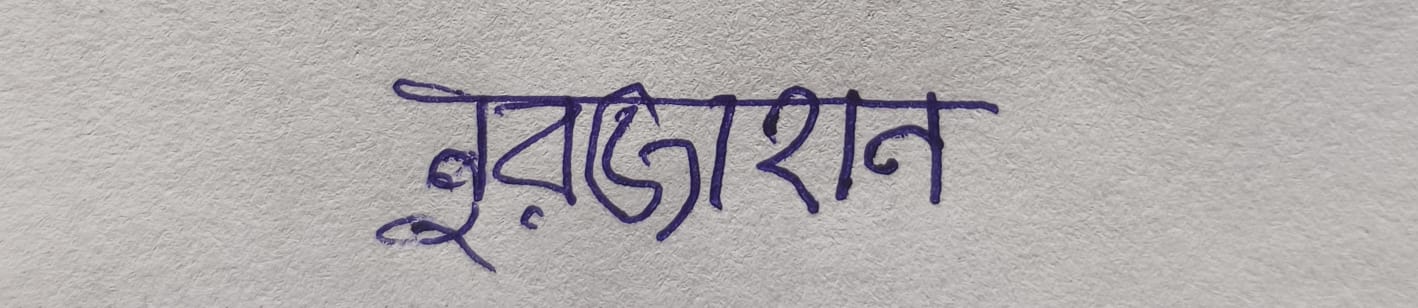 নূরজাহান